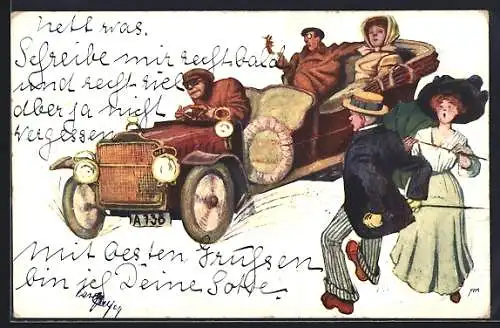 nett was.
Schreibe mir recht bald
und recht viel
aber ja nicht
vergessen
A 130
Mit besten Grüssen
bin ich Deine Lotte.